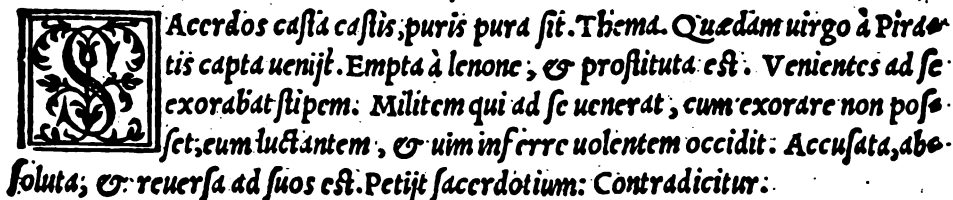 SAcerdos casta castis, puris pura sit. Thema. Quædam uirgo à Pira-
tis capta uenijt. Empta à lenone, & prostituta est. Venientes ad se
exorabat stipem. Militem qui ad se uenerat, cum exorare non pos-
set, eum luctantem, & uim inferre uolentem occidit. Accusata, ab-
soluta, & reuersa ad suos est. Petijt sacerdotium: Contradicitur.